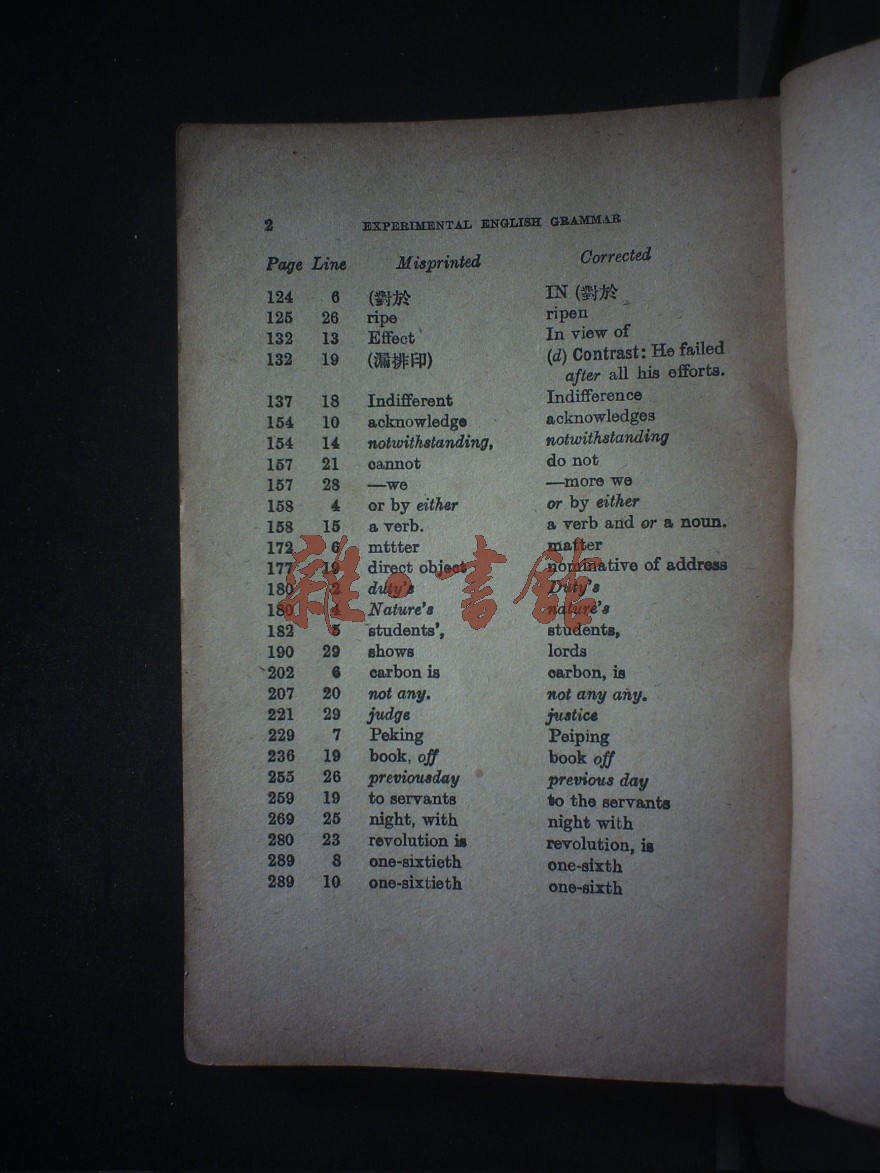 2 EXPERIMENTAL ENGLISH GRAMMAR
Page Line Misprinted Corrected
124 6 (對於 IN (對於
125 26 ripe ripen
132 13 Effect In view of
132 19 (漏排印) (d) Contrast: He failed
after all his efforts.
137 18 Indifferent Indifference
154 10 acknowledge acknowledges
154 14 notwithstanding, notwithstanding
157 21 cannot do not
157 28 —we —more we
158 4 or by either or by either
158 15 a verb. a verb and or a noun.
172 6 mttter matter
177 19 direct object nominative of address
180 2 duty's Duty's
180 4 Nature's nature's
182 5 students', students,
190 29 shows lords
202 6 carbon is carbon, is
207 20 not any. not any any.
221 29 judge justice
229 7 Peking Peiping
236 19 book, off book off
255 26 previousday previous day
259 19 to servants to the servants
269 25 night, with night with
280 23 revolution is revolution, is
289 8 one-sixtieth one-sixth
289 10 one-sixtieth one-sixth
雜·書館